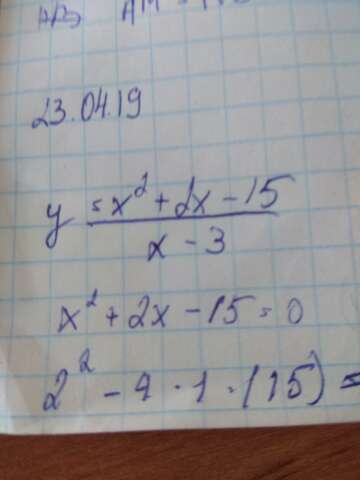 23.04.19
y = x² + 2x - 15
x - 3
x² + 2x - 15 = 0
2² - 4 · 1 · (15) =